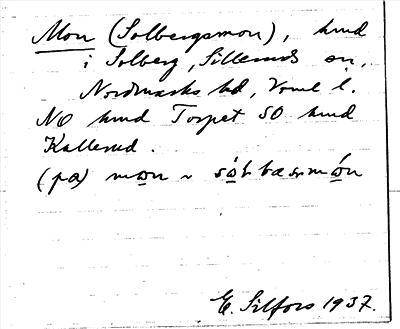 Mon (Solbergsmon), hmd
i Solberg, Silleruds sn,
Nordmarks hd, Vrml l.
NO hmd Torpet SO hmd
Kallerud.
(på) mon ~
E. Silfors 1937.